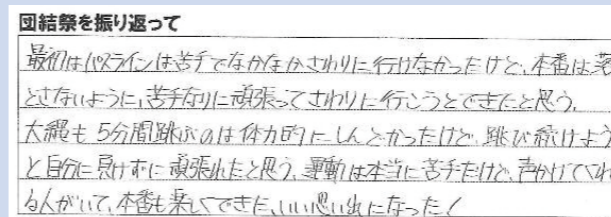 団結祭を振り返って
最初はパスラインは苦手でなかなかさわりに行けなかったけど、本番は落
とさないように、苦手なりに頑張ってさわりに行こうとできたと思う。
大縄も5分間跳ぶのは体力的にしんどかったけど、跳び続けよう
と自分に負けずに頑張れたと思う。運動は本当に苦手だけど、声かけてくれ
る人がいて、本番も楽しくできた、いい思い出になった!